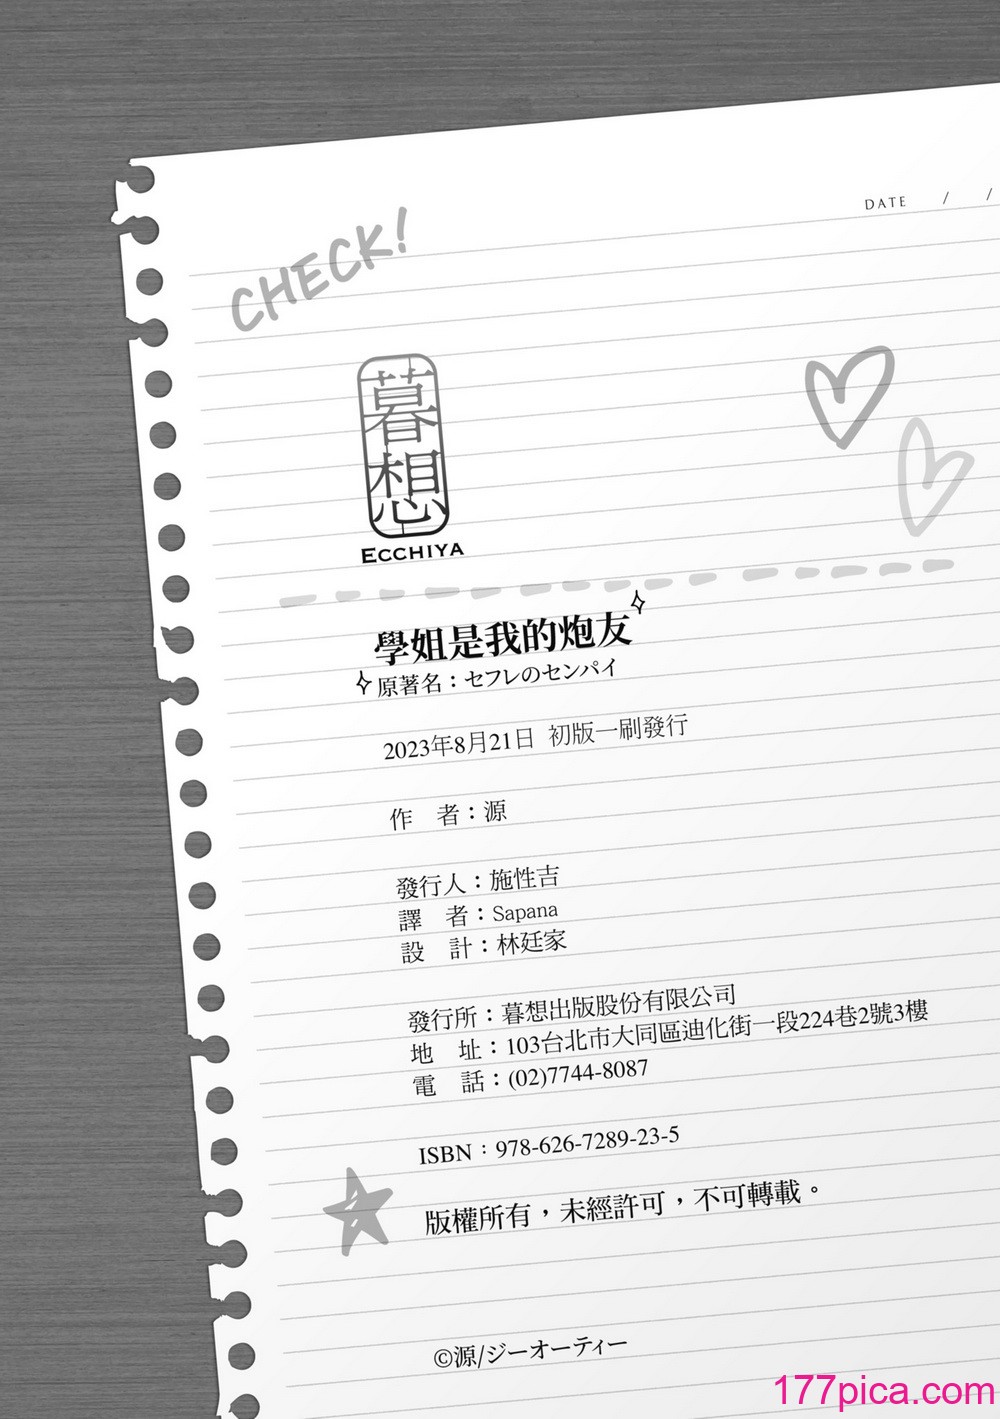 DATE / /
CHECK!
暮想
ECCHIYA
學姐是我的炮友
原著名：セフレのセンパイ
2023年8月21日 初版一刷發行
作　者：源
發行人：施性吉
譯　者：Sapana
設　計：林廷家
發行所：暮想出版股份有限公司
地　址：103台北市大同區迪化街一段224巷2號3樓
電　話：(02)7744-8087
ISBN：978-626-7289-23-5
版權所有，未經許可，不可轉載。
©源/ジーオーティー
177pica.com